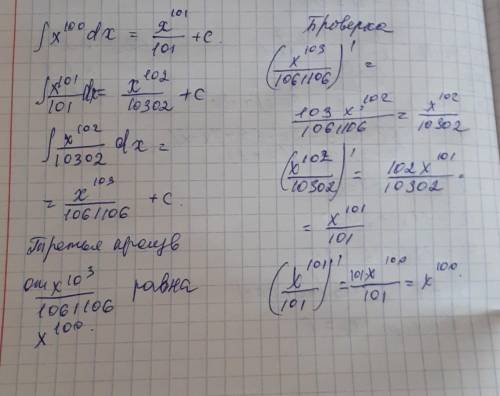 ∫ x¹⁰⁰ dx = x¹⁰¹/101 + c.
∫ x¹⁰¹/101 dx = x¹⁰²/10302 + c
∫ x¹⁰²/10302 dx =
= x¹⁰³/1061106 + c.
Третья произв
от x¹⁰³/1061106 равна
x¹⁰⁰.
Проверка
(x¹⁰³/1061106)' =
103 x¹⁰²/1061106 = x¹⁰²/10302
(x¹⁰²/10302)' = 102x¹⁰¹/10302 =
= x¹⁰¹/101
(x¹⁰¹/101)' = 101x¹⁰⁰/101 = x¹⁰⁰.